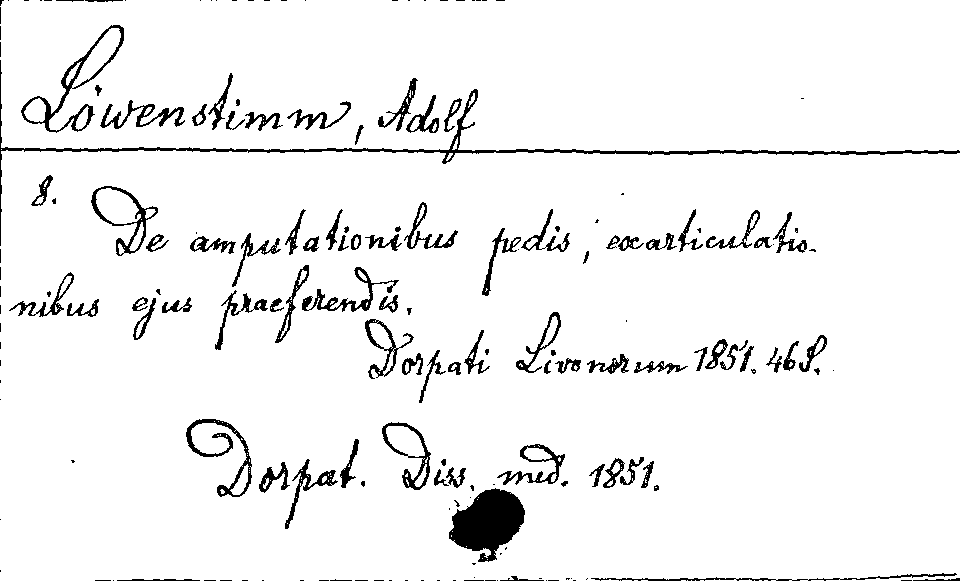 Löwenstimm, Adolf
8.
De amputationibus pedis, exarticulatio-
nibus ejus praeferendis.
Dorpati Livonorum 1851. 46 S.
Dorpat. Diss. med. 1851.